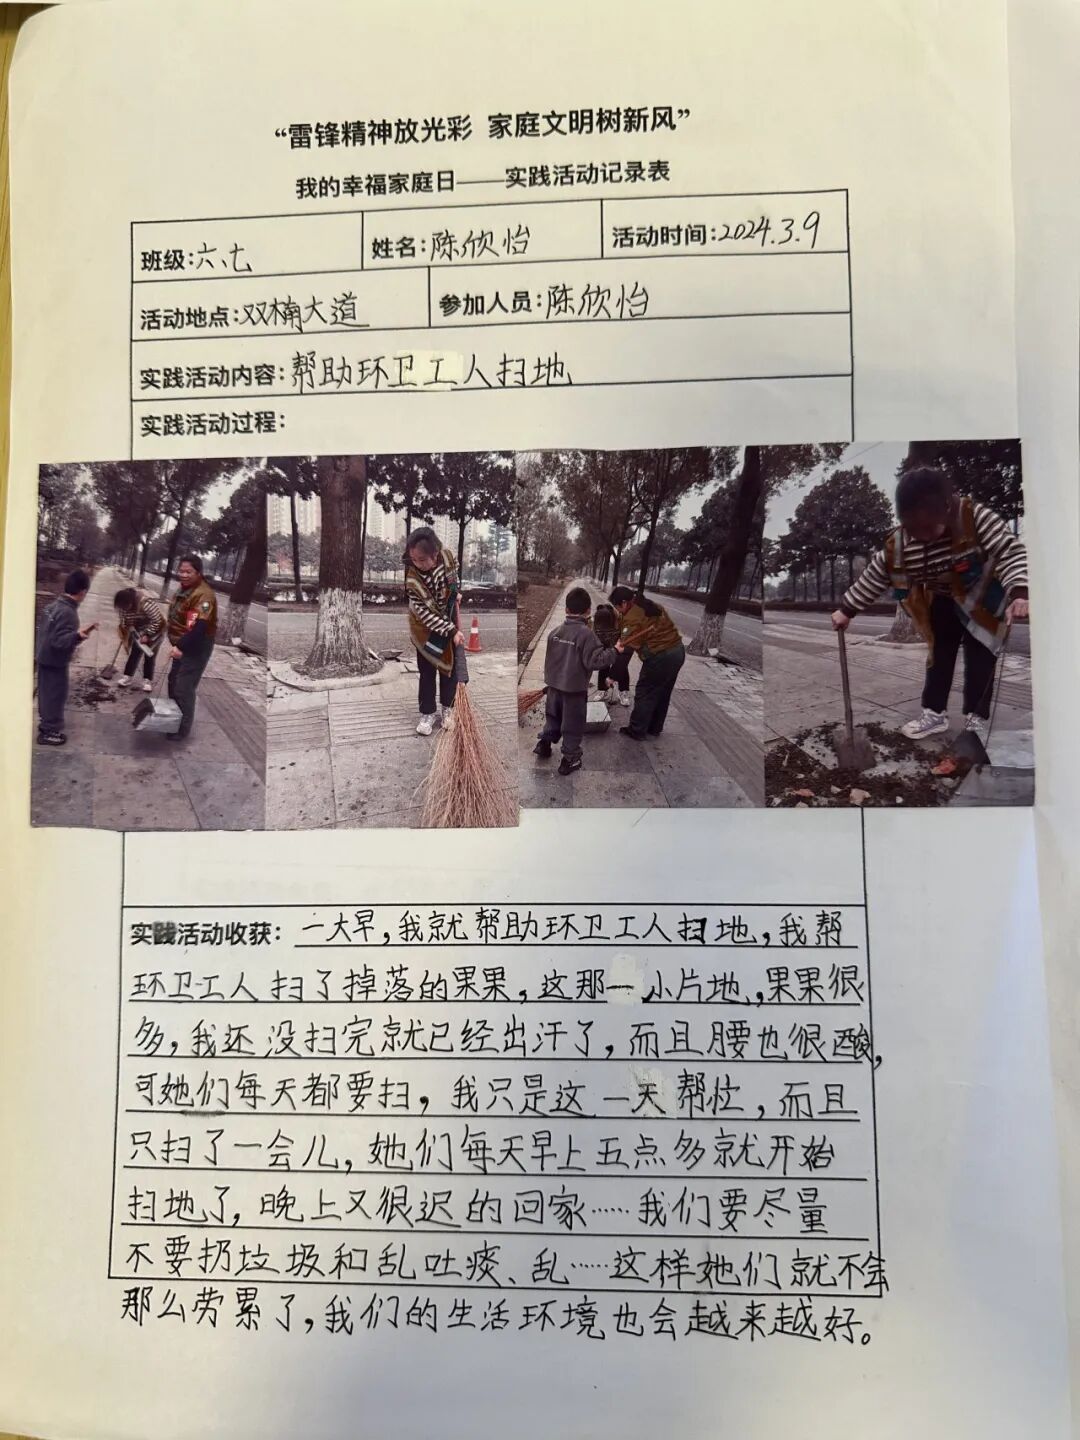 “雷锋精神放光彩 家庭文明树新风”
我的幸福家庭日——实践活动记录表
班级:六、七 姓名:陈欣怡 活动时间:2024.3.9
活动地点:双楠大道 参加人员:陈欣怡
实践活动内容:帮助环卫工人扫地
实践活动过程:
实践活动收获: 一大早,我就帮助环卫工人扫地,我帮
环卫工人扫了掉落的果果,这那一小片地,果果很
多,我还没扫完就已经出汗了,而且腰也很酸,
可她们每天都要扫,我只是这一天帮忙,而且
只扫了一会儿,她们每天早上五点多就开始
扫地了,晚上又很迟的回家……我们要尽量
不要扔垃圾和乱吐痰、乱……这样她们就不会
那么劳累了,我们的生活环境也会越来越好。